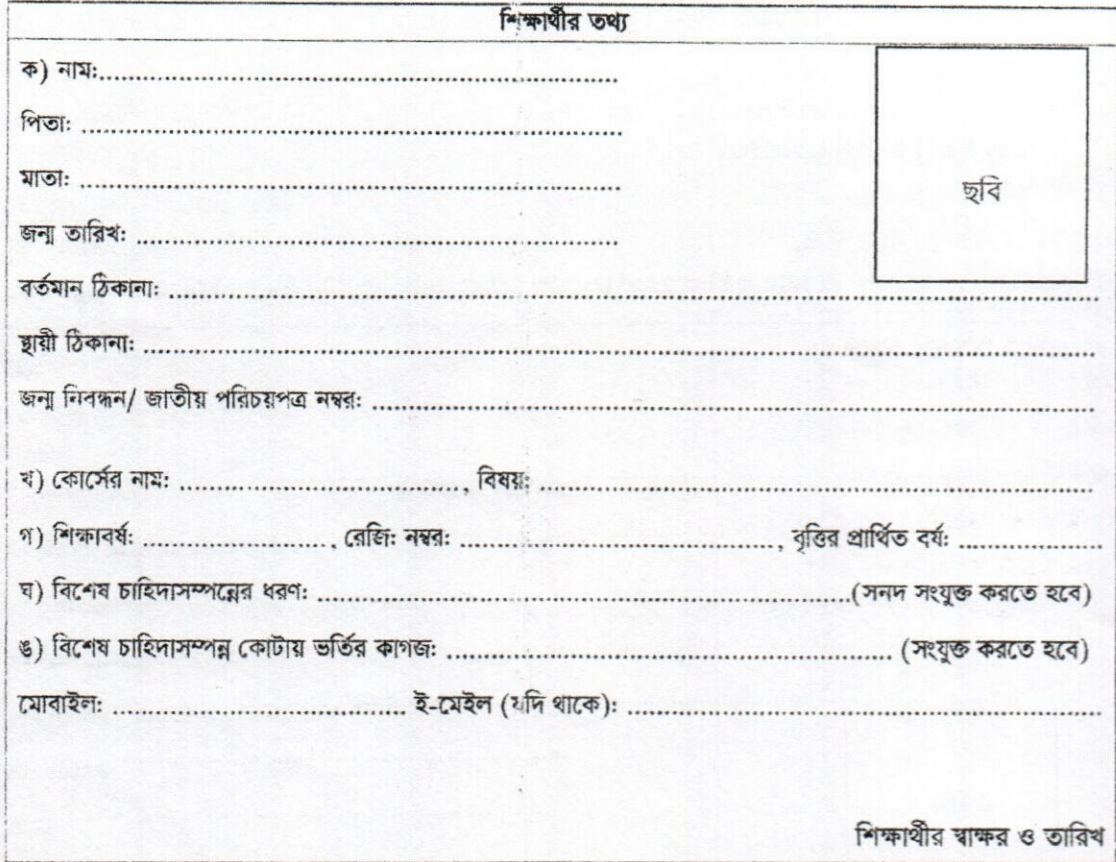 শিক্ষার্থীর তথ্য
ক) নাম:......................................................................
পিতা: ......................................................................
মাতা: ......................................................................
ছবি
জন্ম তারিখ: ..............................................................
বর্তমান ঠিকানা: ..............................................................................................................
স্থায়ী ঠিকানা: ..............................................................................................................
জন্ম নিবন্ধন/ জাতীয় পরিচয়পত্র নম্বর: ..............................................................................
খ) কোর্সের নাম: ......................................, বিষয়: ......................................................................
গ) শিক্ষাবর্ষ: .........................., রেজিঃ নম্বর: ........................................, বৃত্তির প্রার্থিত বর্ষ: ...................
ঘ) বিশেষ চাহিদাসম্পন্নের ধরণ: ......................................................................(সনদ সংযুক্ত করতে হবে)
ঙ) বিশেষ চাহিদাসম্পন্ন কোটায় ভর্তির কাগজ: .......................................................... (সংযুক্ত করতে হবে)
মোবাইল: ...................................... ই-মেইল (যদি থাকে): ..............................................................
শিক্ষার্থীর স্বাক্ষর ও তারিখ